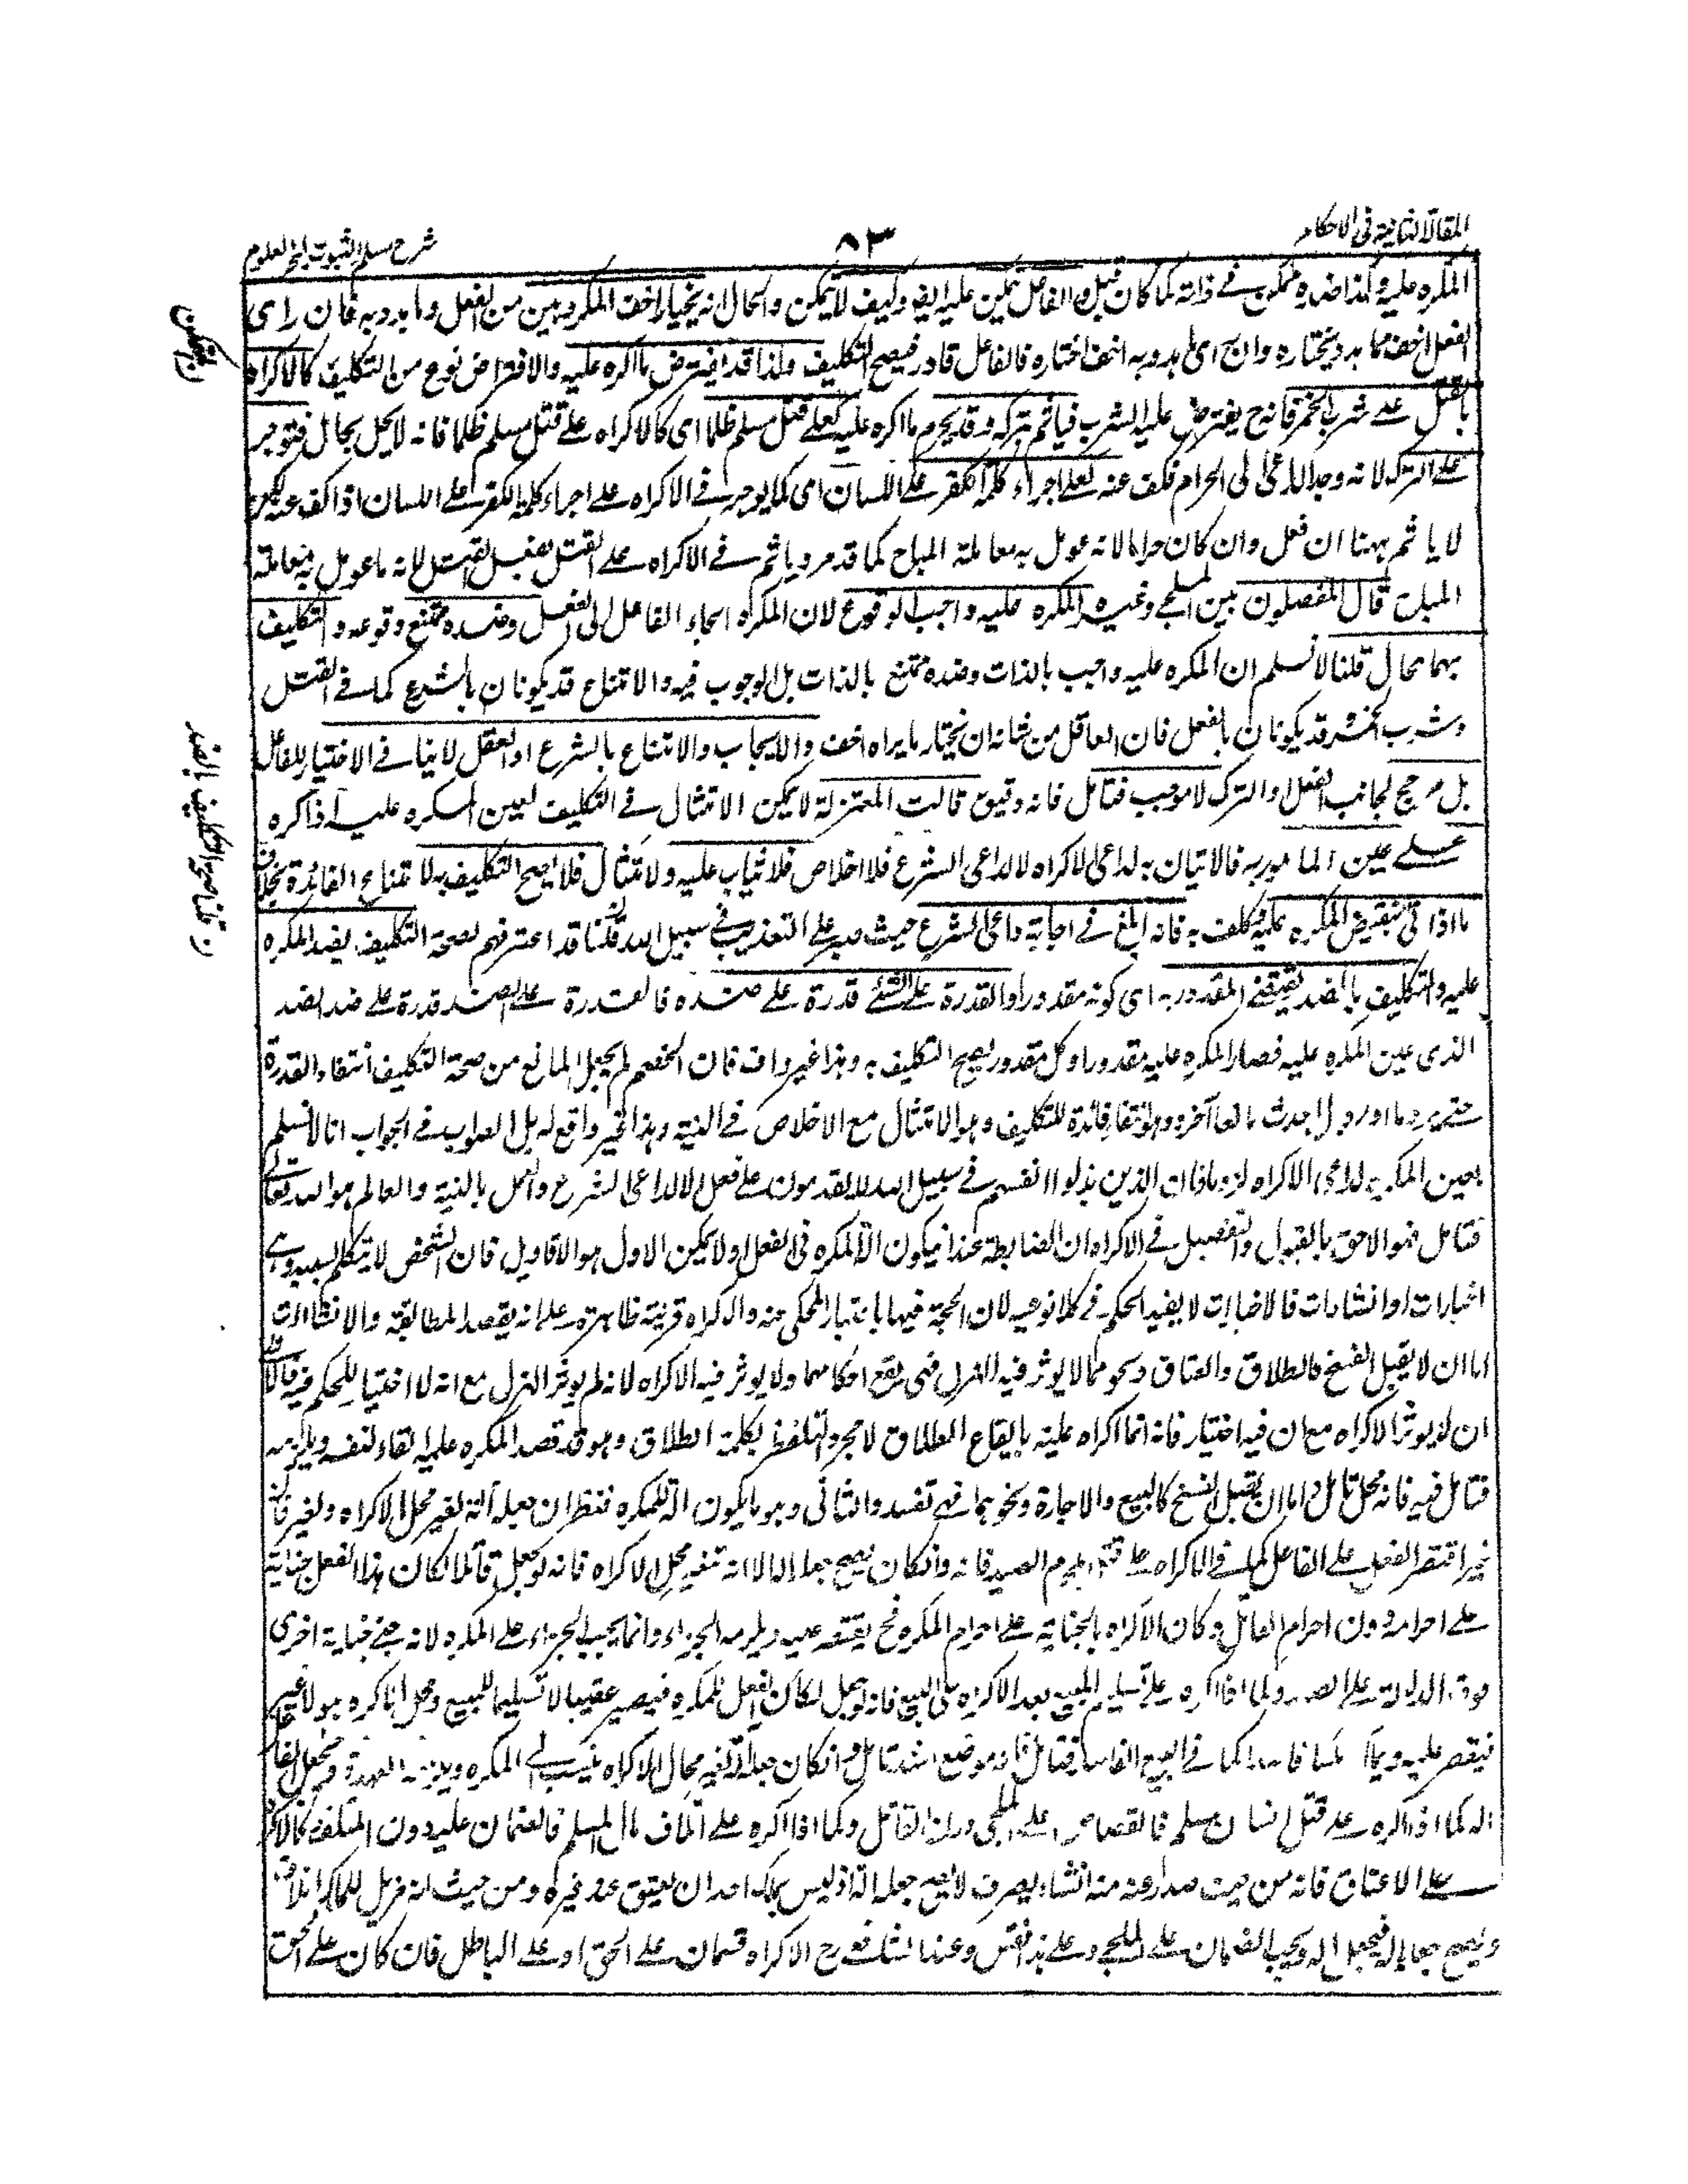 المقالة الثانية فى الاحكام
٨٣
شرح مسلم الثبوت لبحر العلوم
المكره عليه وكذا ضده ممكن فى ذاته كما كان قبل والفاعل يتمكن عليه ايضا وكيف لا يتمكن والحال انه يختار اخف المكروهين من الفعل وما هدد به فان راى
الفعل اخف مما هدد يختاره وان راى ما هدد به اخف اختاره فالفاعل قادر فيصح التكليف ولذا قد يفترض ما اكره عليه والافتراض نوع من التكليف كالاكراه
بالقتل على شرب الخمر فانه ح يفترض عليه الشرب فياثم بتركه وقد يحرم ما اكره عليه كعلى قتل مسلم ظلما اى كالاكراه على قتل مسلم ظلما فانه لا يحل بحال فيوجر
على الترك لانه وجد الداعى الى الحرام فكف عنه كعلى اجراء كلمة الكفر على اللسان اى كما يوجر فى الاكراه على اجراء كلمة الكفر على اللسان اذا كف عنه لكن
لا ياثم ههنا ان فعل وان كان حراما لانه عومل به معاملة المباح كما قد مر وياثم فى الاكراه على القتل بفعل القتل لانه ما عومل به معاملة
المباح قال المفصلون بين الملجى وغيره المكره عليه واجب الوقوع لان المكره الجاء الفاعل الى الفعل وضده ممتنع وقوعه والتكليف
بهما محال قلنا لا نسلم ان المكره عليه واجب بالذات وضده ممتنع بالذات بل الوجوب فيه والامتناع قد يكونان بالشرع كما فى القتل
وشرب الخمر وقد يكونان بالعقل فان العاقل من شانه ان يختار ما يراه اخف والايجاب والامتناع بالشرع او العقل لا ينافى الاختيار للفاعل
بل مرجح لجانب الفعل او الترك لا موجب فتامل فانه دقيق قالت المعتزلة لا يمكن الامتثال فى التكليف بعين المكره عليه اذا كره
على عين المامور به فالاتيان به لداعى الاكراه لا لداعى الشرع فلا اخلاص فلا يثاب عليه ولا امتثال فلا يصح التكليف به لامتناع الفائدة بخلاف
ما اذا اتى بنقيض المكره عليه فكلف به فانه ابلغ فى اجابة داعى الشرع حيث صبر على التعذيب فى سبيل الله قلنا قد اعترفتم بصحة التكليف بضد المكره
عليه والتكليف بالضد يقتضى المقدور به اى كونه مقدورا والقدرة على الشئ قدرة على ضده فالقدرة على الضد قدرة على ضد الضد
الذى عين المكره عليه فصار المكره عليه مقدورا وكل مقدور يصح التكليف به وهذا غير واف فان الخصم لم يجعل المانع من صحة التكليف انتفاء القدرة
حتى يرد ما اورد بل احدث مانعا آخر وهو انتفاء فائدة التكليف وهو الامتثال مع الاخلاص فى النية وهذا غير واقع له بل الصواب فى الجواب انا لا نسلم
بعين المكره به لداعى الاكراه لزوما فان الذين بذلوا انفسهم فى سبيل الله لا يقدمون على فعل الا لداعى الشرع والعمل بالنية والعالم هو الله تعالى
فتامل فهو الاحق بالقبول والتفصيل فى الاكراه ان الضابطة عندنا يكون الآلة المكره فى الفعل او لا يمكن الاول هو الاقاويل فان الشخص لا يتكلم بلسان وهى
اخبارات او انشاءات فالاخبارات لا يفيد الحكم فى كلا نوعيه لان الحجة فيها باعتبار المحكى عنه والاكراه قرينة ظاهرة على انه لم يقصد المطابقة والانشاءات
اما ان لا يقبل الفسخ كالطلاق والعتاق ونحوهما لا يوثر فيه الهزل فهى يقع احكامها ولا يوثر فيه الاكراه لانه لم يوثر الهزل مع انه لا اختيار للحكم فيه فالاولى
ان لا يوثر الاكراه مع ان فيه اختيار فانه انما اكراه عليه بايقاع الطلاق لا مجرد التلفظ بكلمة الطلاق وهو قد قصد المكره عليه ابقاء لنفسه ويلزمه
فتامل فيه فانه محل تامل واما ان يقبل الفسخ كالبيع والاجارة ونحوهما فهى تفسد والثانى وهو ما يكون آلة للمكره فنظر ان جعله آلة لغير محل الاكراه ولغير
غير اقتصر الفعل على الفاعل كما فى الاكراه على قتل المحرم الصيد فانه وان كان يصح جعله آلة الا انه تغير محل الاكراه فانه لو جعل قاتلا لكان هذا الفعل جناية
على احرامه دون احرام القاتل وكان الاكراه بالجناية على احرام المكره فح يقتصر عليه ويلزمه الجزاء وانما يجب الجزاء على المكره لانه جنى جناية اخرى
فوق الدلالة على الصيد وكما اذا اكره على تسليم المبيع بعد الاكراه على البيع فانه لو جعل آلة لكان الفعل للمكره فيصير غصبا لا تسليما للمبيع ومحل الاكراه هو لا غير
فيقتصر عليه ويملك ملكا فاسدا كما فى البيع الفاسد فتامل فانه موضع اشد تامل وان كان جعله آلة لا لغير محال الاكراه ينسب الى المكره ويلزمه العهدة ويجعل الفاعل
آلة كما اذا اكره على قتل انسان مسلم فالقصاص على الملجى دون القاتل وكما اذا اكره على اتلاف مال المسلم فالضمان عليه دون المتلف كالاكراه
على الاعتاق فانه من حيث صدار عنه منه انشاء تصرف لا يصح جعله آلة اذ ليس يملك احد ان يعتق عبد غيره ومن حيث انه مزيل للملك اتلاف
ويصح جعله آلة فيجعل آلة ويجب الضمان على الملجى وعلى هذا فقس وعند الشافعى رح الاكراه قسمان على الحق او على الباطل فان كان على الحق